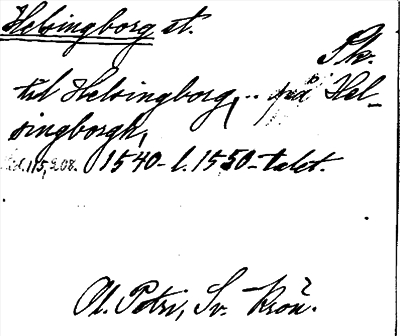 Helsingborg st.
Sk.
til Helsingborg, .. på Hel-
singborgh,
s. 115, 208. 1540- l. 1550-talet.
Ol. Petri, Sv. Krön.